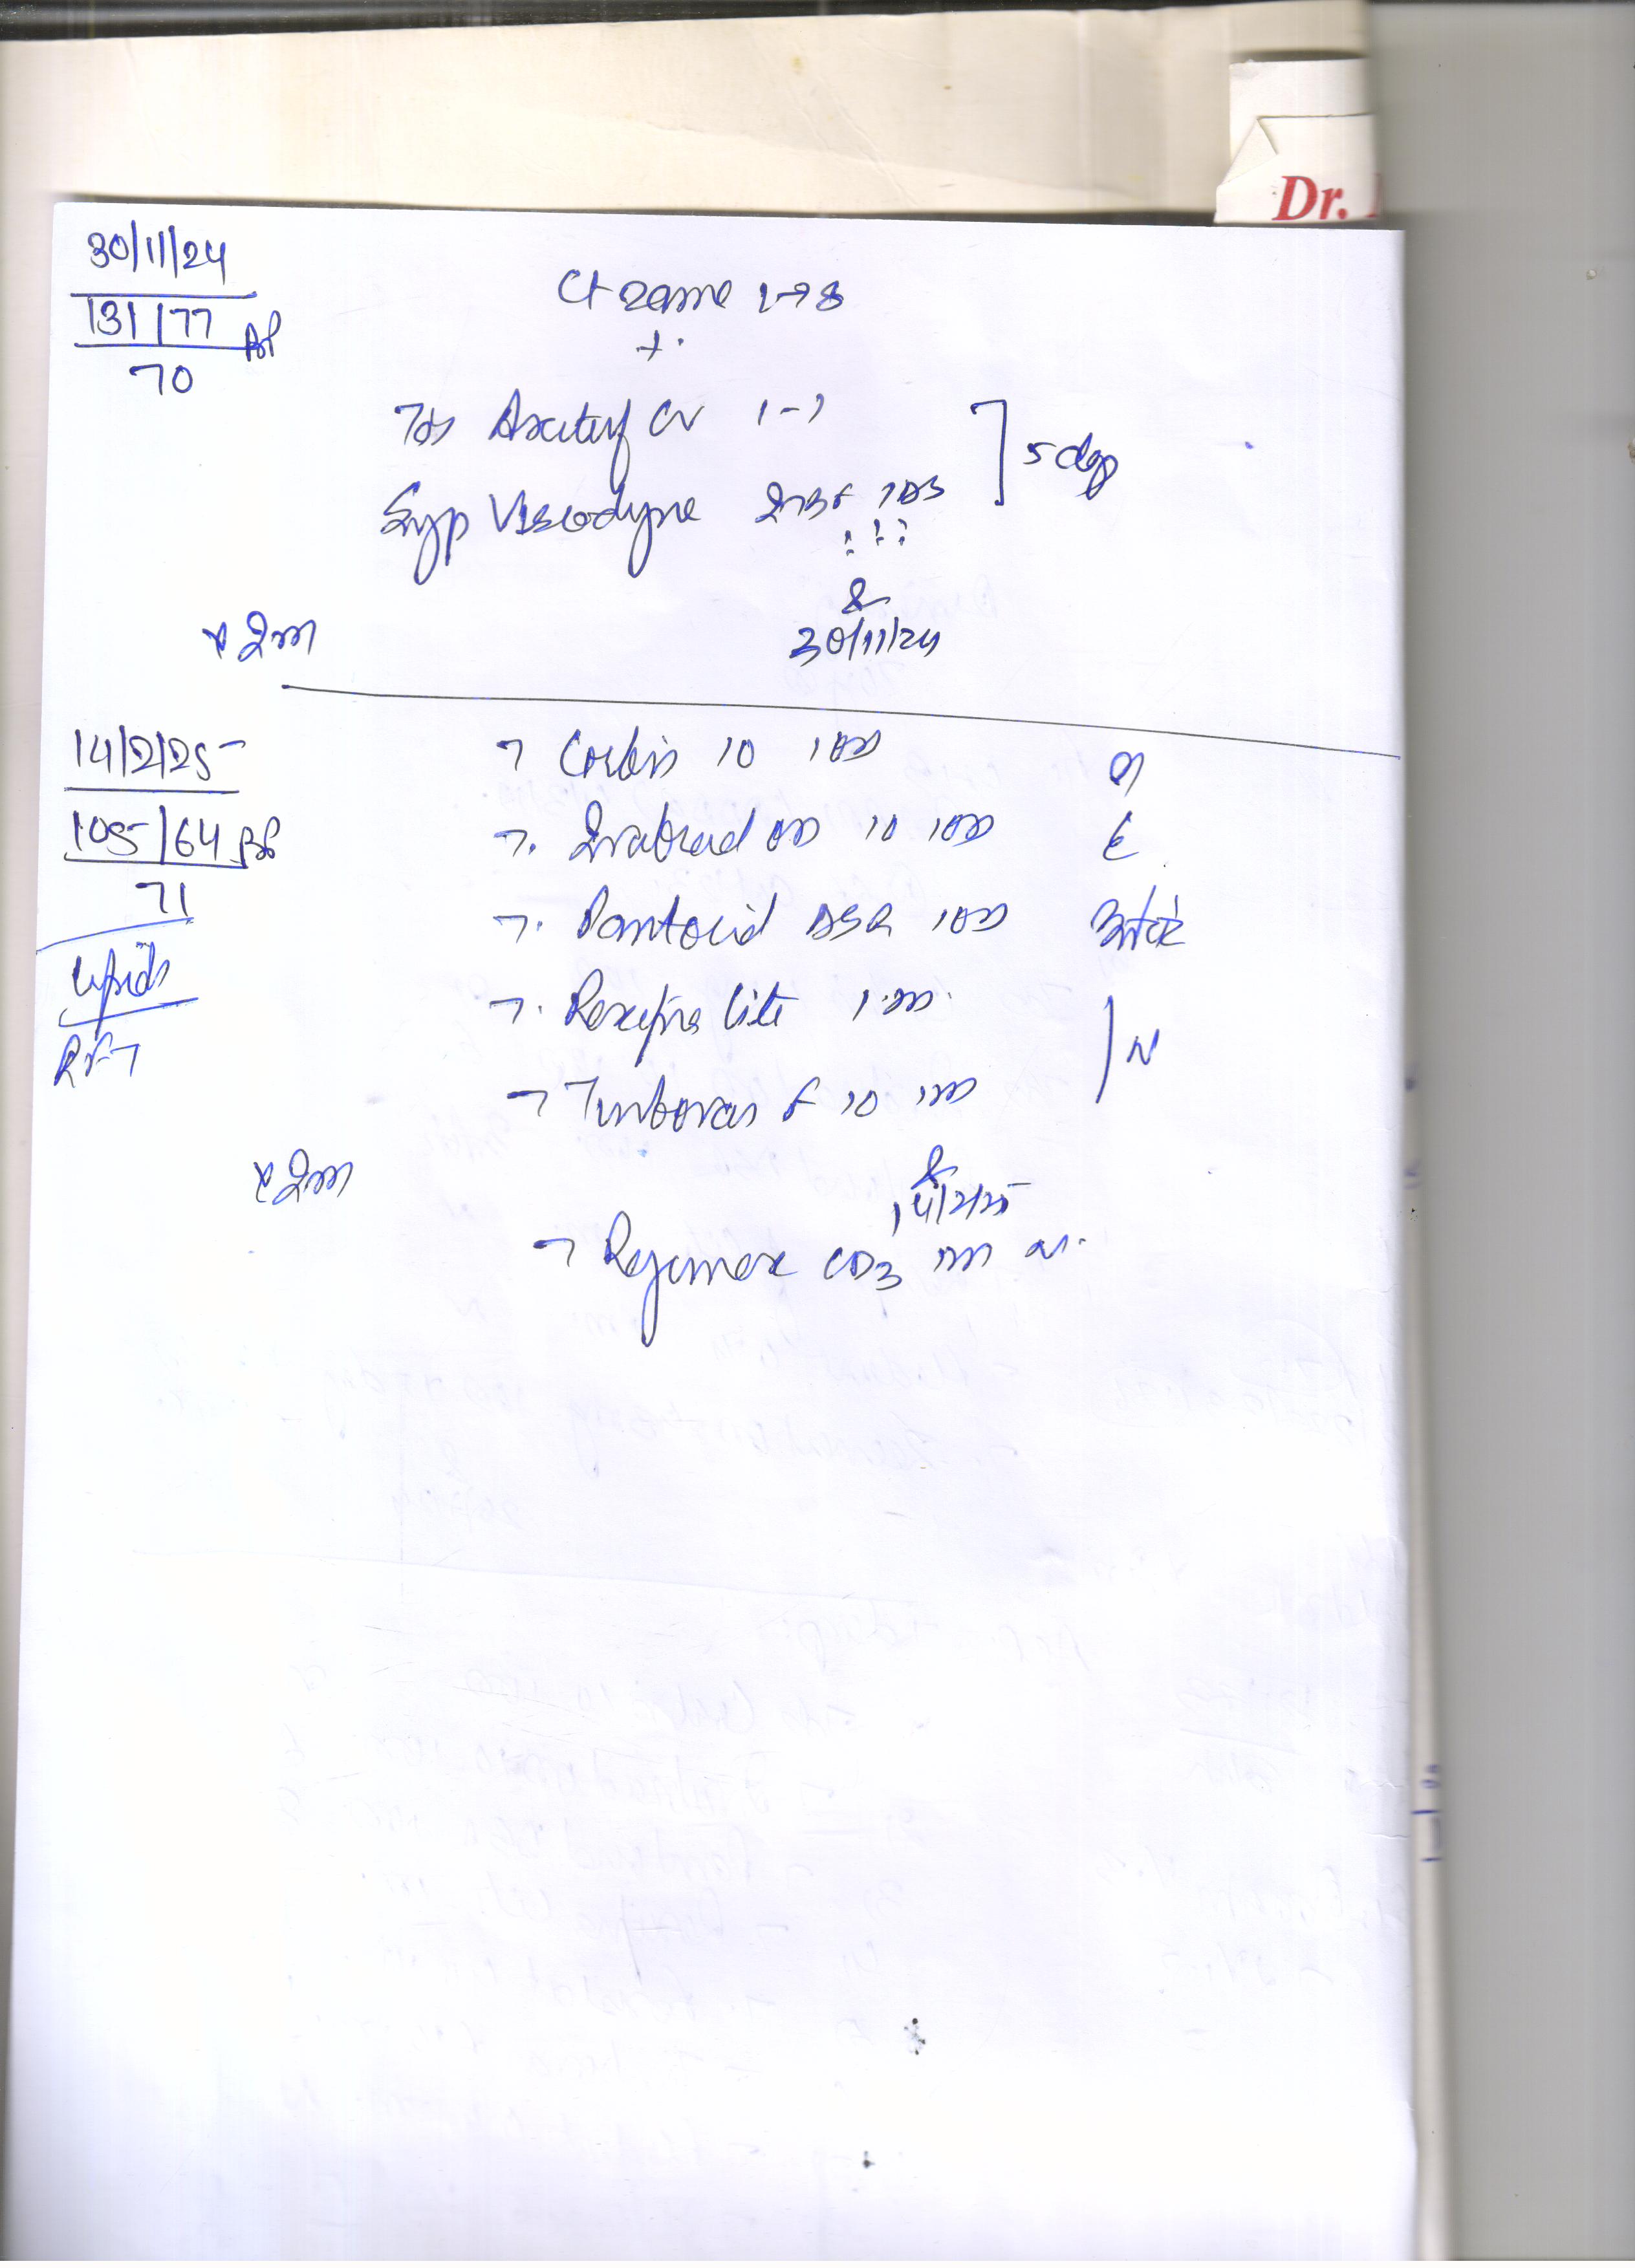 Dr.
30/11/24
131/77 BP
70
Ct same 1→8
+
Tab CV 1-1
Syp Viscodyne
5 days
&
30/11/24
x 2m
14/2/25
105/64 BP
71
Lipids
RFT
T Corbis 10 1OD
T. Ivabrad OD 10 1OD E
T. Pantocid DSR 1OD
T. lite 1OD
T F 10 1OD N
x 2m
&
14/2/25
T CD3